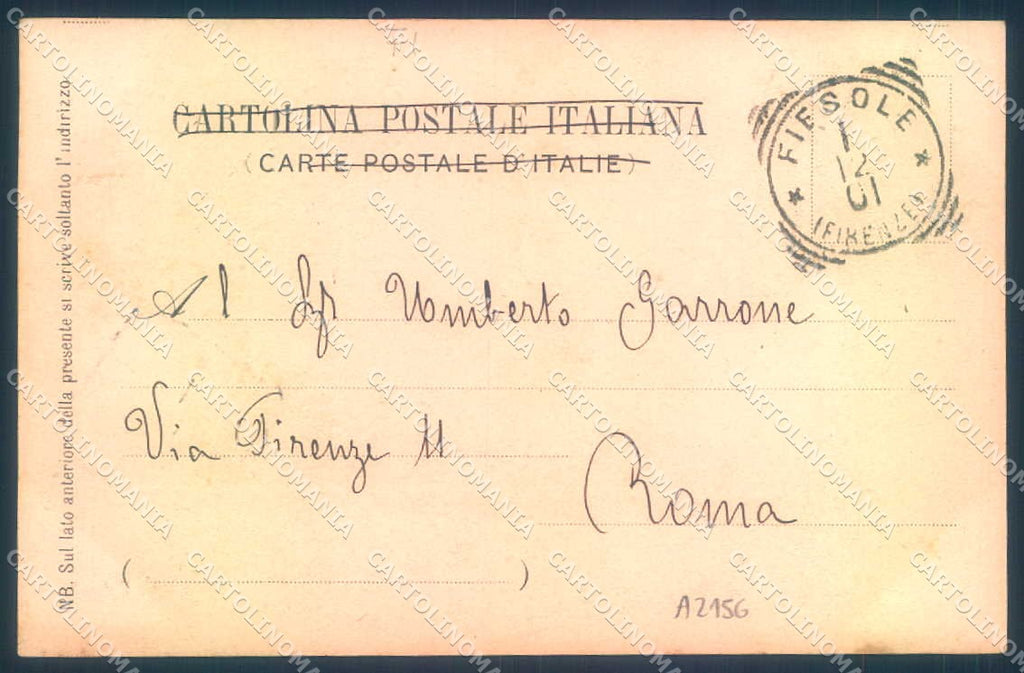 CARTOLINA POSTALE ITALIANA
(CARTE POSTALE D'ITALIE)
FIESOLE
1
12
01
(FIRENZE)
Al Sigr Umberto Garrone
Via Firenze 11
Roma
( )
A2156
NB. Sul lato anteriore della presente si scrive soltanto l'indirizzo.
CARTOLINOMANIA